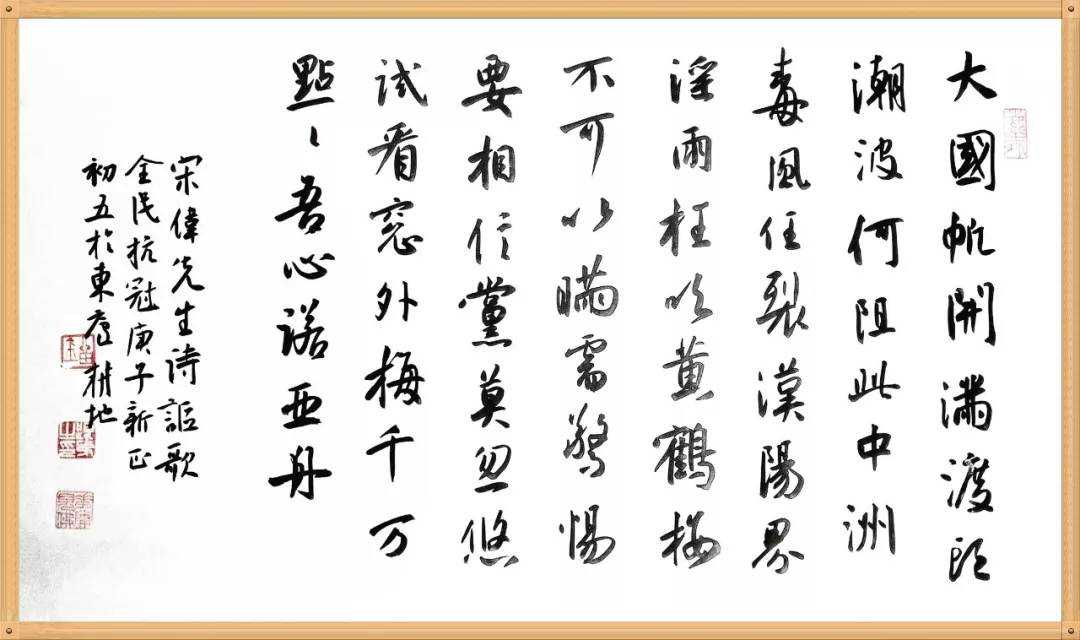 大國帆開滿渡頭
潮波何阻此中洲
毒風任裂漢陽界
淫雨枉吹黃鶴樓
不可以瞞需警惕
要相信黨莫忽悠
試看窓外梅千万
點〻吾心諾亞舟
宋偉先生詩謳歌
全民抗冠庚子新正
初五於東廬耕地